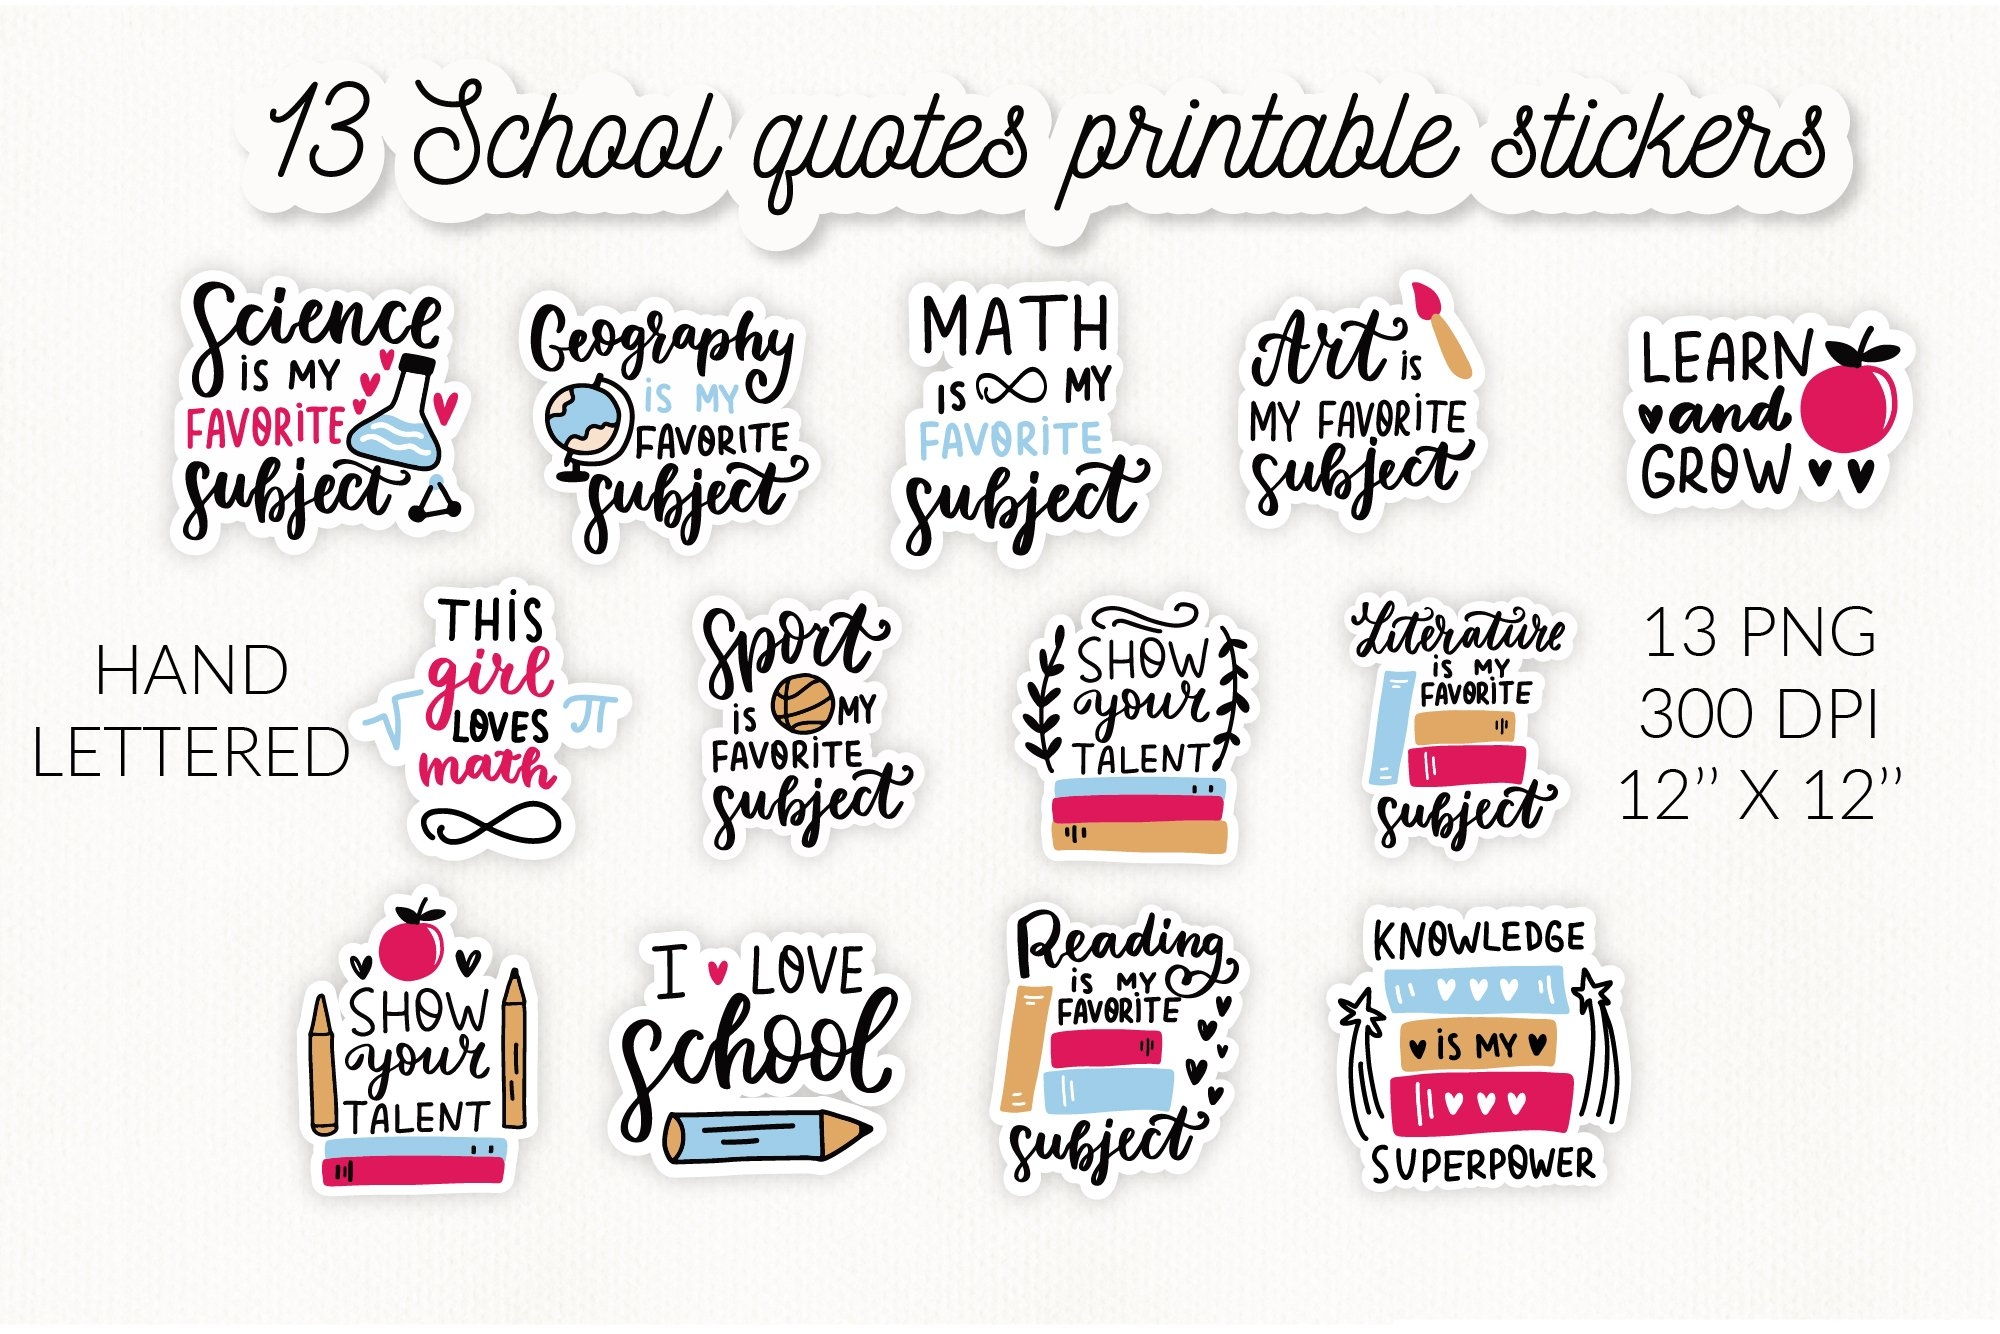 13 School quotes printable stickers
Science
is MY
FAVORiTE
subject
Geography
is MY
FAVORiTE
subject
MATH
is MY
FAVORiTE
subject
Art is
MY FAVORiTE
subject
LEARN
and
GROW
HAND
LETTERED
THiS
girl
LOVES
math
√ π
Sport
is MY
FAVORiTE
subject
SHOW
your
TALENT
Literature
is MY
FAVORiTE
subject
13 PNG
300 DPI
12” X 12”
SHOW
your
TALENT
I LOVE
school
Reading
is MY
FAVORiTE
subject
KNOWLEDGE
iS MY
SUPERPOWER